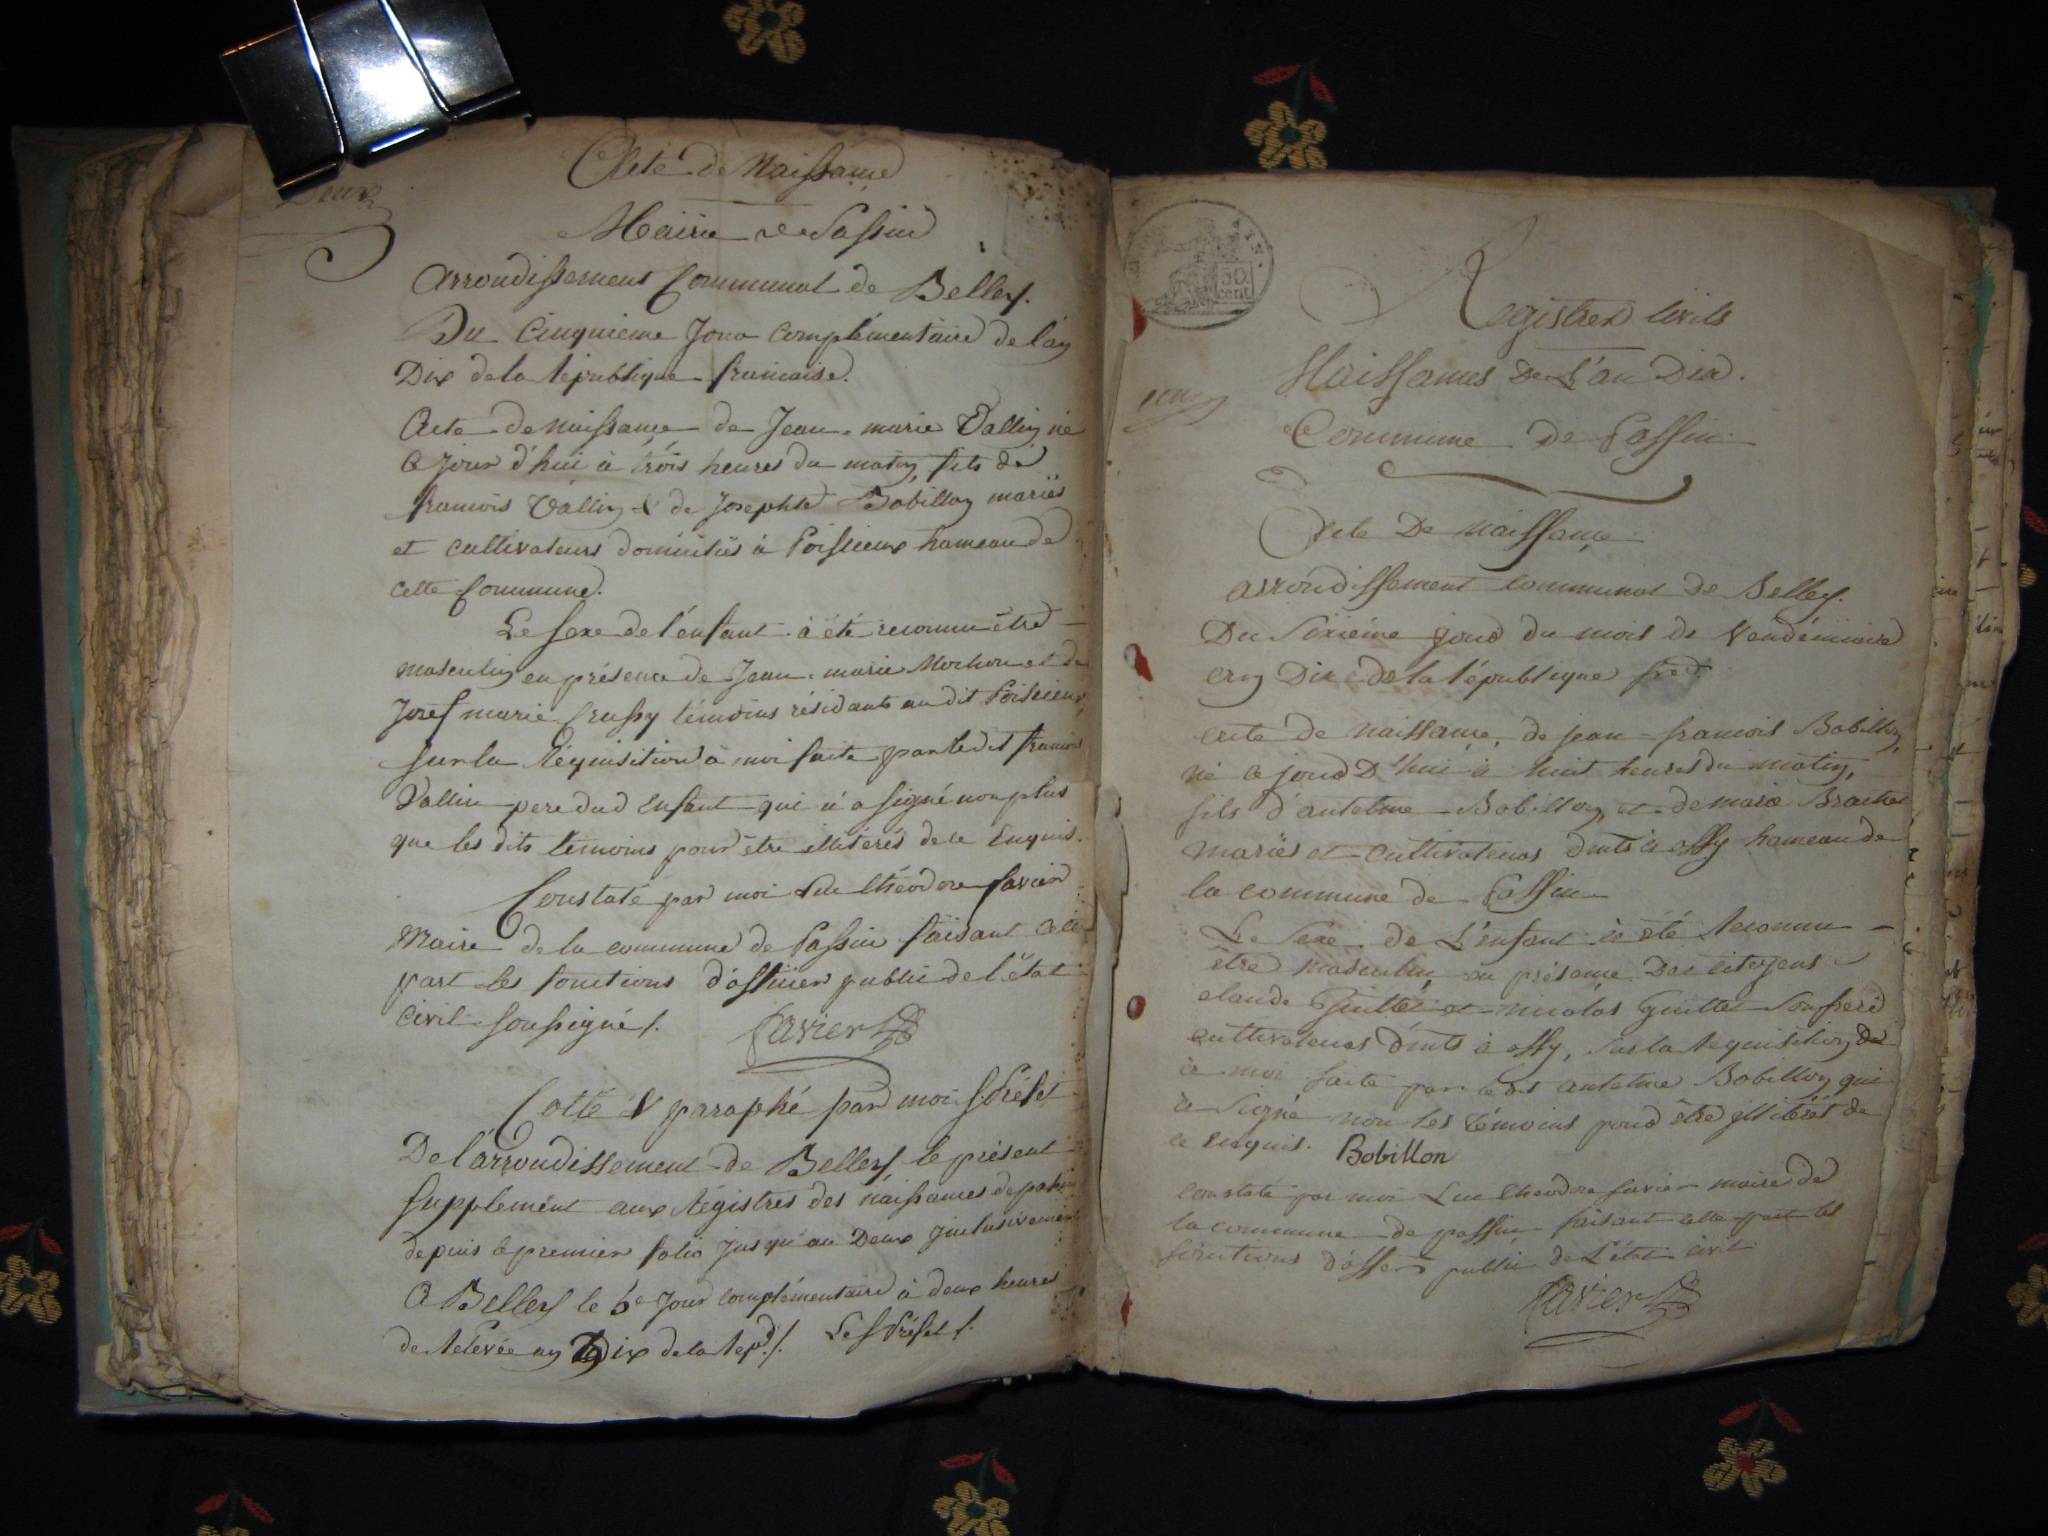 Deux
Acte de Naissance
Mairie de Passin
Arrondissement Communal de Belley.
Du Cinquieme Jour complémentaire de l'an
Dix de la république francaise.
Acte de naissance de Jean-marie Vallin né
ce jour d'hui à trois heures du matin, fils de
francois Vallin & de Josephte Bobillon mariés
et cultivateurs domiciliés à Poissieux hameau de
cette Commune.
Le sexe de l'enfant à été reconnu être
masculin en présence de Jean-marie Mochon et de
Josef marie Crussy témoins résidants au dit Poissieux,
sur la réquisition à moi faite par ledit francois
Vallin pere dud enfant qui n'a signé non plus
que les dits témoins pour être illiterés de ce Enquis.
Constaté par moi Luc théodore favier
Maire de la commune de Passin faisant en cette
part les fonctions d'officier public de l'état
Civil soussigné /.
favier
Cotté & paraphé par moi S. Préfet
De l'arrondissement de Belley le présent
Supplément aux Régistres des naissances de passin
depuis le premier folio jusqu'au Deux inclusivement
A Belley le 5e Jour complémentaire à deux heures
de relevée an Dix de la rep. /. Le S Préfet /.
50
cent
Registres Civils
Naissances De L'an Dix.
Commune De Passin.
un
Acte De naissance
arrondissement communal de Belley.
Du Sixieme jour du mois de Vendémiaire
an Dix de la république
acte de naissance, de jean-francois Bobillon,
né ce jour D'hui à huit heures du matin,
fils d'antelme Bobillon, et de marie
mariés et cultivateurs à assy hameau de
la commune de Passin
Le Sexe de L'enfant à été reconnu
être masculin, en présence Des citoyens
claude Guillet et nicolas guillet Son frere
cultivateurs à assy, sur la réquisition
à moi faite par le dit antelme Bobillon qui
a Signé non les témoins pour être illiterés de
ce enquis. Bobillon
constaté par moi Luc théodore favier maire de
la commune de passin faisant cette part les
fonctions d'offer public de L'état civil
favier